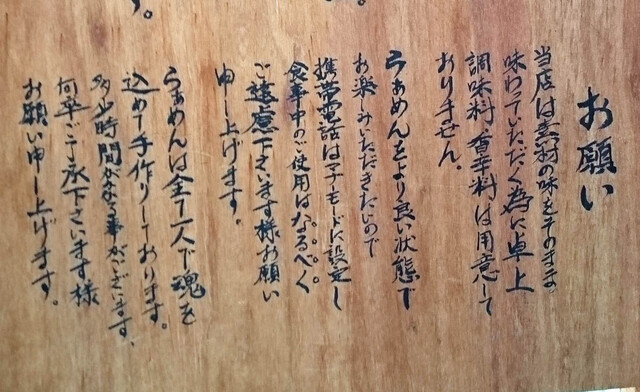 お願い
当店は素材の味をそのまま
味わっていただく為に卓上
調味料、香辛料は用意して
おりません。
らぁめんをより良い状態で
お楽しみいただきたいので
携帯電話はマナーモードに設定し
食事中のご使用はなるべく。
ご遠慮下さいます様お願い
申し上げます。
らぁめんは全て一人で魂を
込めて手作りしております。
多少時間がかかる事がございます、
何卒ご了承下さいます様
お願い申し上げます。